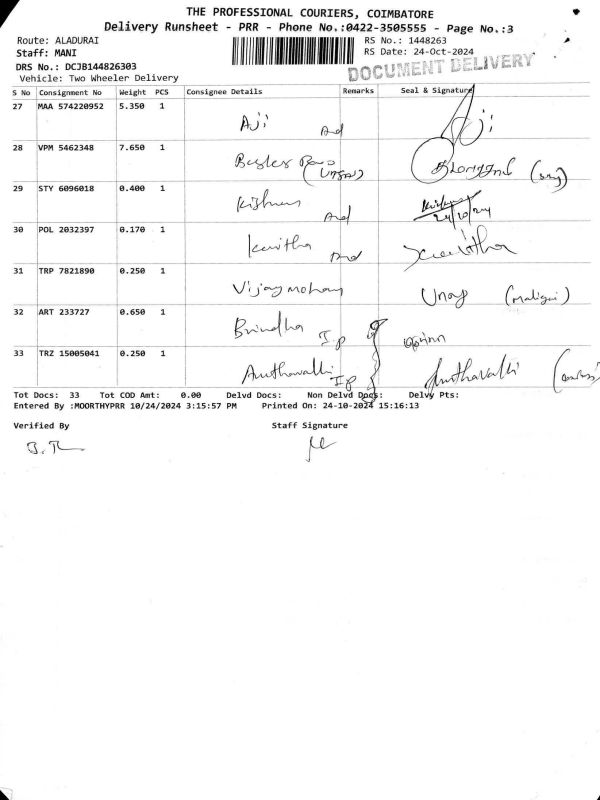 THE PROFESSIONAL COURIERS, COIMBATORE
Delivery Runsheet - PRR - Phone No.:0422-3505555 - Page No.:3
Route: ALADURAI RS No.: 1448263
Staff: MANI RS Date: 24-Oct-2024
DRS No.: DCJB144826303 DOCUMENT DELIVERY
Vehicle: Two Wheeler Delivery
S No Consignment No Weight PCS Consignee Details Remarks Seal & Signature
27 MAA 574220952 5.350 1
Aji Aji
28 VPM 5462348 7.650 1
29 STY 6096018 0.400 1
24/10/24
30 POL 2032397 0.170 1
Kavitha Kavitha
31 TRP 7821890 0.250 1
Vijaymohan
32 ART 233727 0.650 1
Brindha
33 TRZ 15005041 0.250 1
Amthavalli Amthavalli
Tot Docs: 33 Tot COD Amt: 0.00 Delvd Docs: Non Delvd Docs: Delvy Pts:
Entered By :MOORTHYPRR 10/24/2024 3:15:57 PM Printed On: 24-10-2024 15:16:13
Verified By Staff Signature